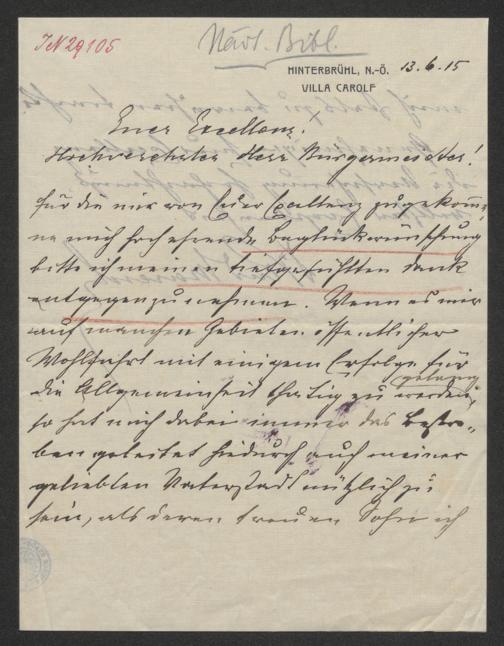 IN 29105
Närl. Bibl.
HINTERBRÜHL, N.-Ö. 13.6.15
VILLA CAROLF
Euer Excellenz.
Hochverehrter Herr Bürgermeister!
für die mir von Euer Exellenz zugekomm=
ne mich hoch ehrende Beglückwünschung
bitte ich meinen tiefgefühlten Dank
entgegenzunehmen. Wenn es mir
auf manchen Gebieten öffentlicher
Wohlfahrt mit einigem Erfolge für
die Allgemeinheit thätig zu werden gelang,
so hat mich dabei immer das Bestre=
ben geleitet hiedurch auch meiner
geliebten Vaterstadt nützlich zu
sein, als deren treuen Sohn ich